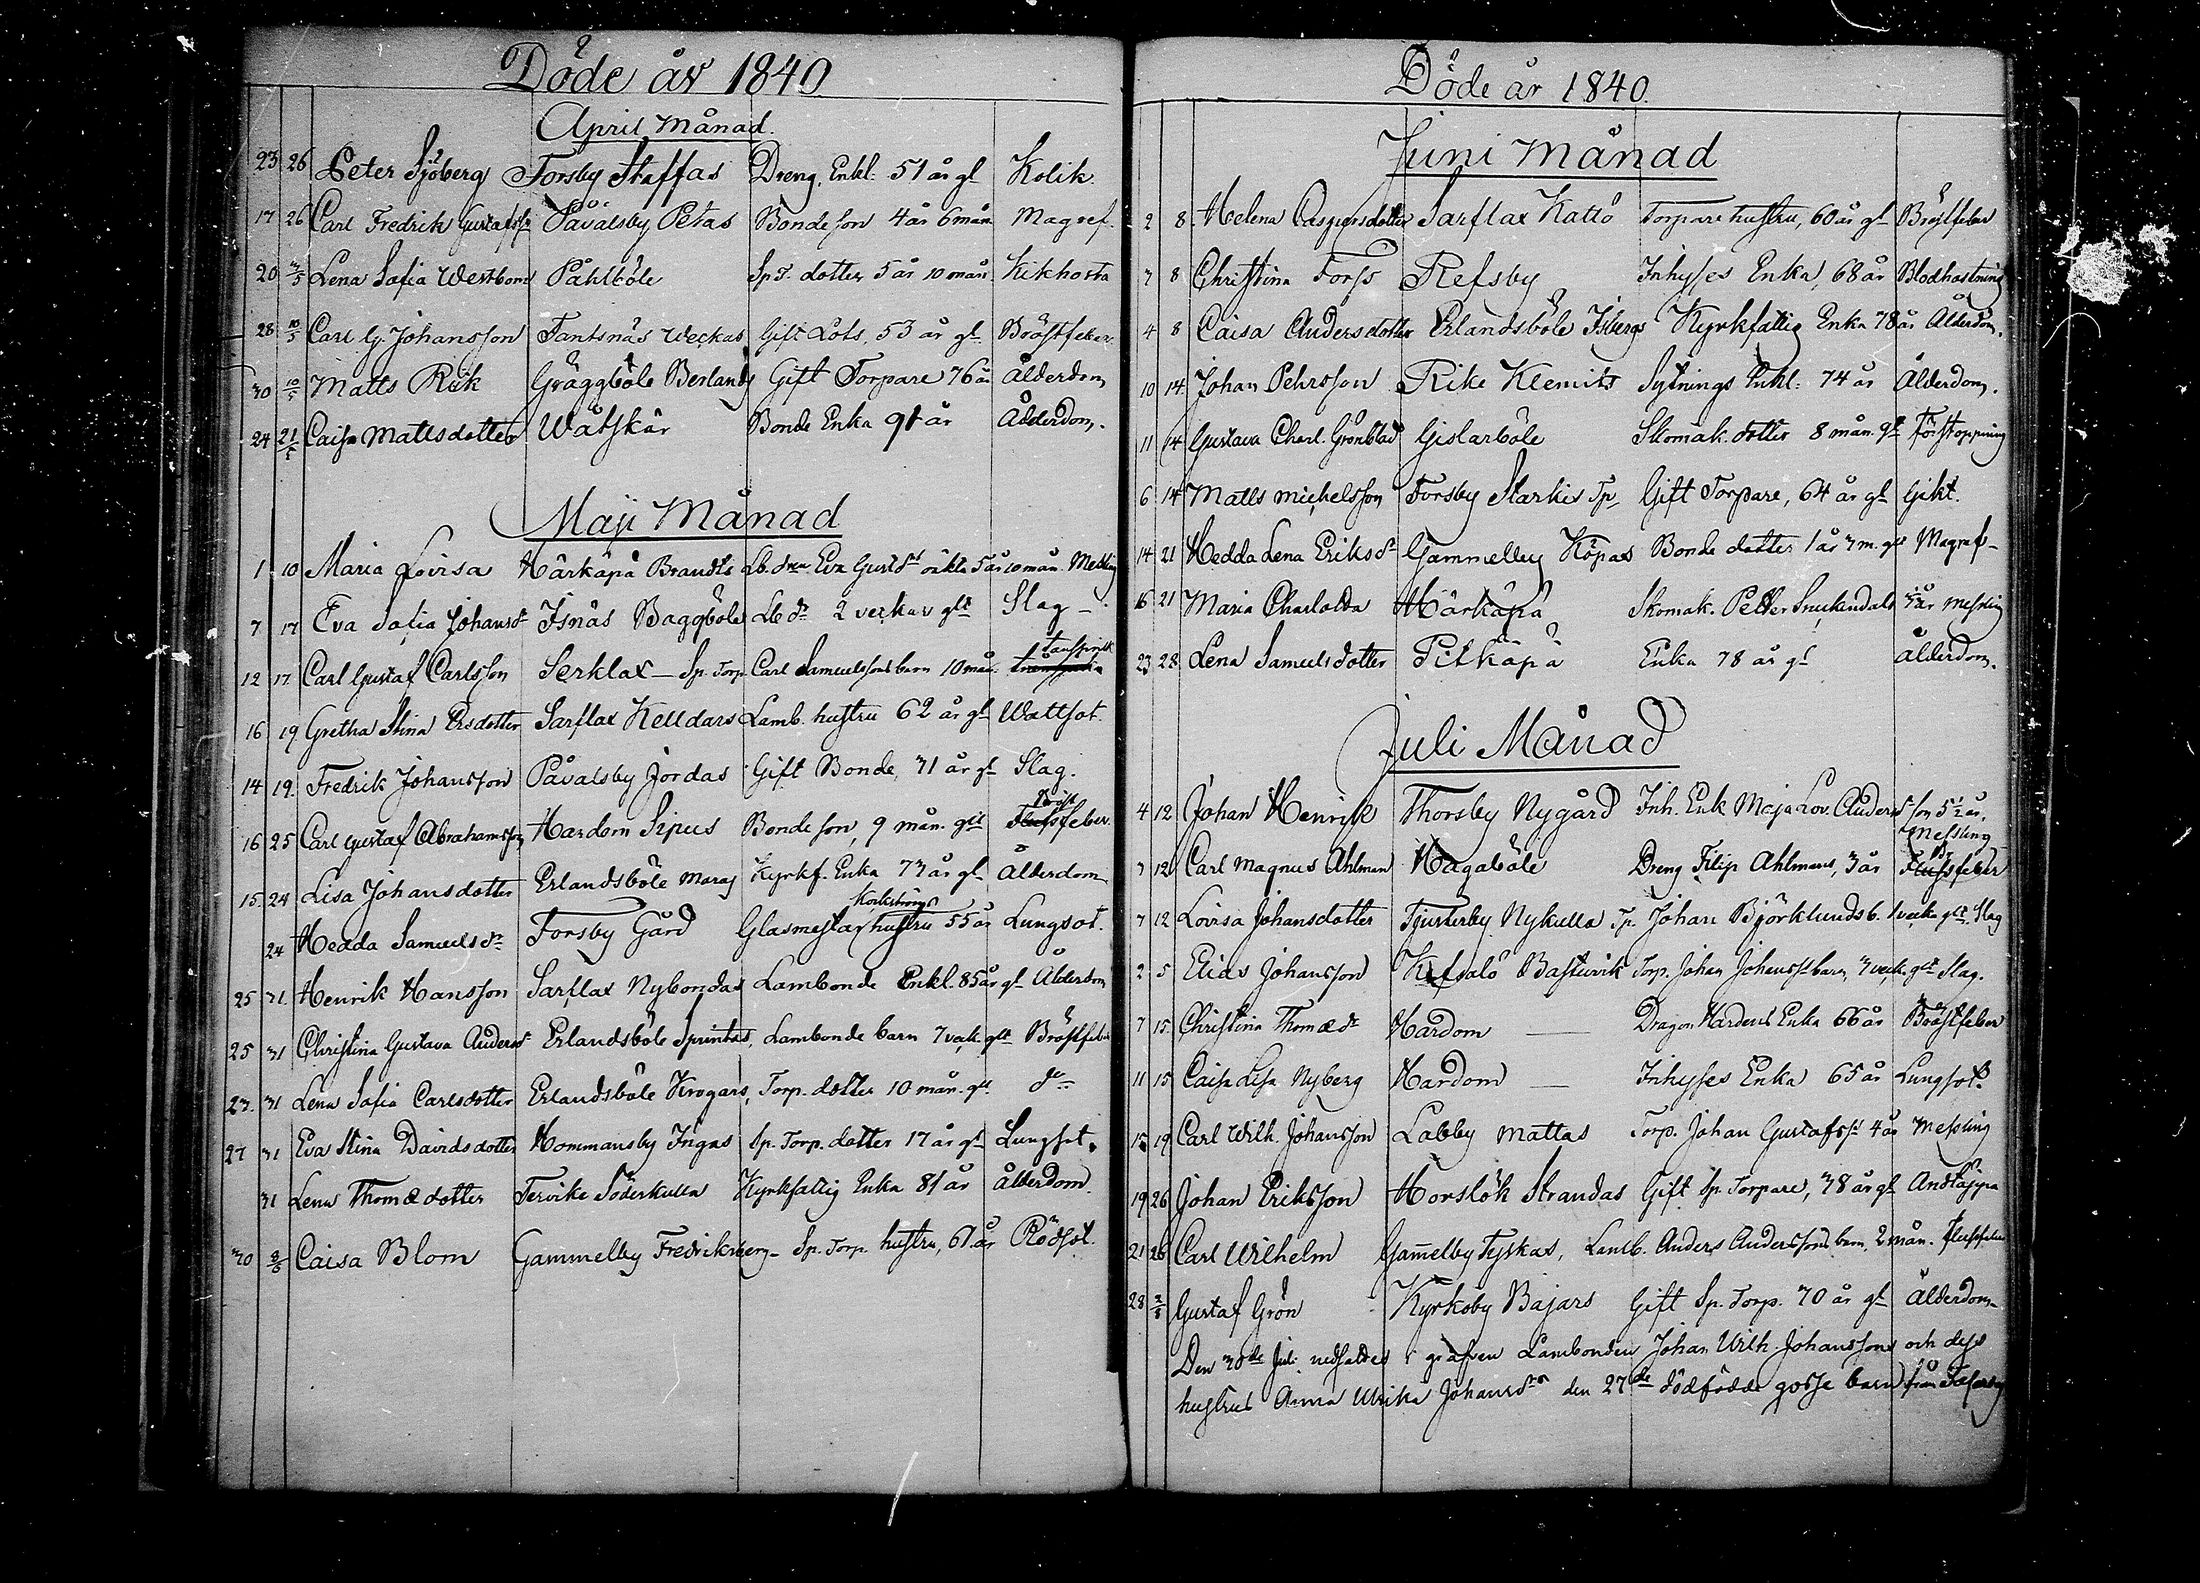 Döde år 1840
April Månad.
23 26 Peter Sjöberg Forsby Staffas Dreng, Enkl. 51 år gl Kolik.
17 26 Carl Fredrik Gustafss. Påvalsby Petas Bondeson 4 år 6 mån Magref.
20 3/5 Lena Sofia Westbom Påhlböle Sp. T. dotter 5 år 10 mån. Kikhosta
28 10/5 Carl G. Johansson Fantsnäs Weckas Gift Lots, 53 år gl. Bröstfeber.
30 10/5 Matts Rük Gräggböle Berlands Gift Torpare 76 år Ålderdom
24 21/5 Caisa Mattsdotter Wåtskär Bonde Enka 91 år Ålderdom.
Maji Månad
1 10 Maria Lovisa Härkäpä Brandts Lb. dra Eva Gust.dr oäkta 5 år 10 mån. Messling
7 17 Eva Sofia Johansdr Isnäs Baggböle Lb dr 2 veckor glt Slag -
12 17 Carl Gustaf Carlsson Serklax - Sp. Torp. Carl Samuelssons barn 10 mån.
16 19 Gretha Stina Ersdotter Sarflax Kelldars Lamb. hustru 62 år gl Wattsot.
14 19. Fredrik Johansson Påvalsby Jordas Gift Bonde, 31 år gl Slag.
16 25 Carl Gustaf Abrahamsson Hardom Sipus Bondeson, 9 mån. glt Bröstfeber
15 24 Lisa Johansdotter Erlandsböle Maras Kyrkf. Enka 73 år gl. Ålderdom
24 Hedda Samuelsdr Forsby Gård Glasmästar hustru 55 år Lungsot.
25 31. Henrik Hansson Sarflax Nybondas Lambonde Enkl. 85 år gl Ålderdom
25 31 Christina Gustava Andersdr Erlandsböle Sprintas, Lambonde barn 7 veck. glt Bröstfeber
23. 31 Lena Sofia Carlsdotter Erlandsböle Krogars, Torp. dotter 10 mån. gl. do
27 31 Eva Stina Davidsdotter Hommansby Ingas Sp. Torp. dotter 17 år gl Lungsot.
31 Lena Thomædotter Tervike Söderkulla Kyrkfattig Enka 81 år Ålderdom.
30 8/6 Caisa Blom Gammelby Fredriksberg - Sp. Torp. hustru, 61 år Rödsot.
Döde år 1840.
Juni Månad
2 8. Helena Caspersdotter Sarflax Kattö Torpare hustru, 60 år gl Bröstfeber
7 8 Christina Forss Refsby Inhyses Enka, 68 år Blodhostning
4 8 Caisa Andersdotter Erlandsböle Isbergs Kyrkfattig Enka 78 år Ålderdom.
10 14 Johan Pehrsson Rike Klemits Sytnings Enkl. 74 år Ålderdom.
11 14 Gustava Charl. Grönblad Gislarböle Skomak. dotter 8 mån. gl Förstoppning
6 14 Matts Michelsson Forsby Starkis Tp Gift Torpare, 64 år gl Gikt.
14 21 Hedda Lena Eriksdr Gammelby Köpas Bonde dotter 1 år 3 m. gl Magref -
16 21 Maria Charlotta Härkäpä Skomak. Petter Snickendals Messling
23 28 Lena Samuelsdotter Pitkäpä Enka 78 år gl Ålderdom.
Juli Månad
4 12 Johan Henrik Thorsby Nygård Inh. Enk Maja Lov. Andersdr son 5 1/2 år, Messling
7 12 Carl Magnus Ahlman Hagaböle Dreng Filip Ahlmans, 3 år
7 12 Lovisa Johansdotter Tjusterby Nykulla Tp. Johan Björklunds b. 1 vecka glt. Slag
2 5 Elias Johansson Kefsalö Bastuvik Torp. Johan Johanss. barn, 3 veck. glt Slag.
7 15 Christina Thomædr Hardom — Dragon Hardens Enka 66 år Bröstfeber
11 15 Caisa Lisa Nyberg Hardom — Inhyses Enka 65 år Lungsot.
15 19 Carl Wilh. Johansson Labby Mattas Torp. Johan Gustafss. 4 år Messling
19 26 Johan Eriksson Horslök Strandas Gift Sp. Torpare, 38 år gl Andtäppa
21 26 Carl Wilhelm Gammelby Tyskas, Lamb. Anders Anderssons barn, 2 mån. flussfeber
28 2/8 Gustaf Grön Kyrkoby Bajars Gift Sp. Torp. 70 år gl Ålderdom
Den 30de Juli nedsattes i grafven Lambonden Johan Wilh. Johanssons och dess
hustrus Anna Ulrika Johansdrs den 27de dödfödde gosse barn från